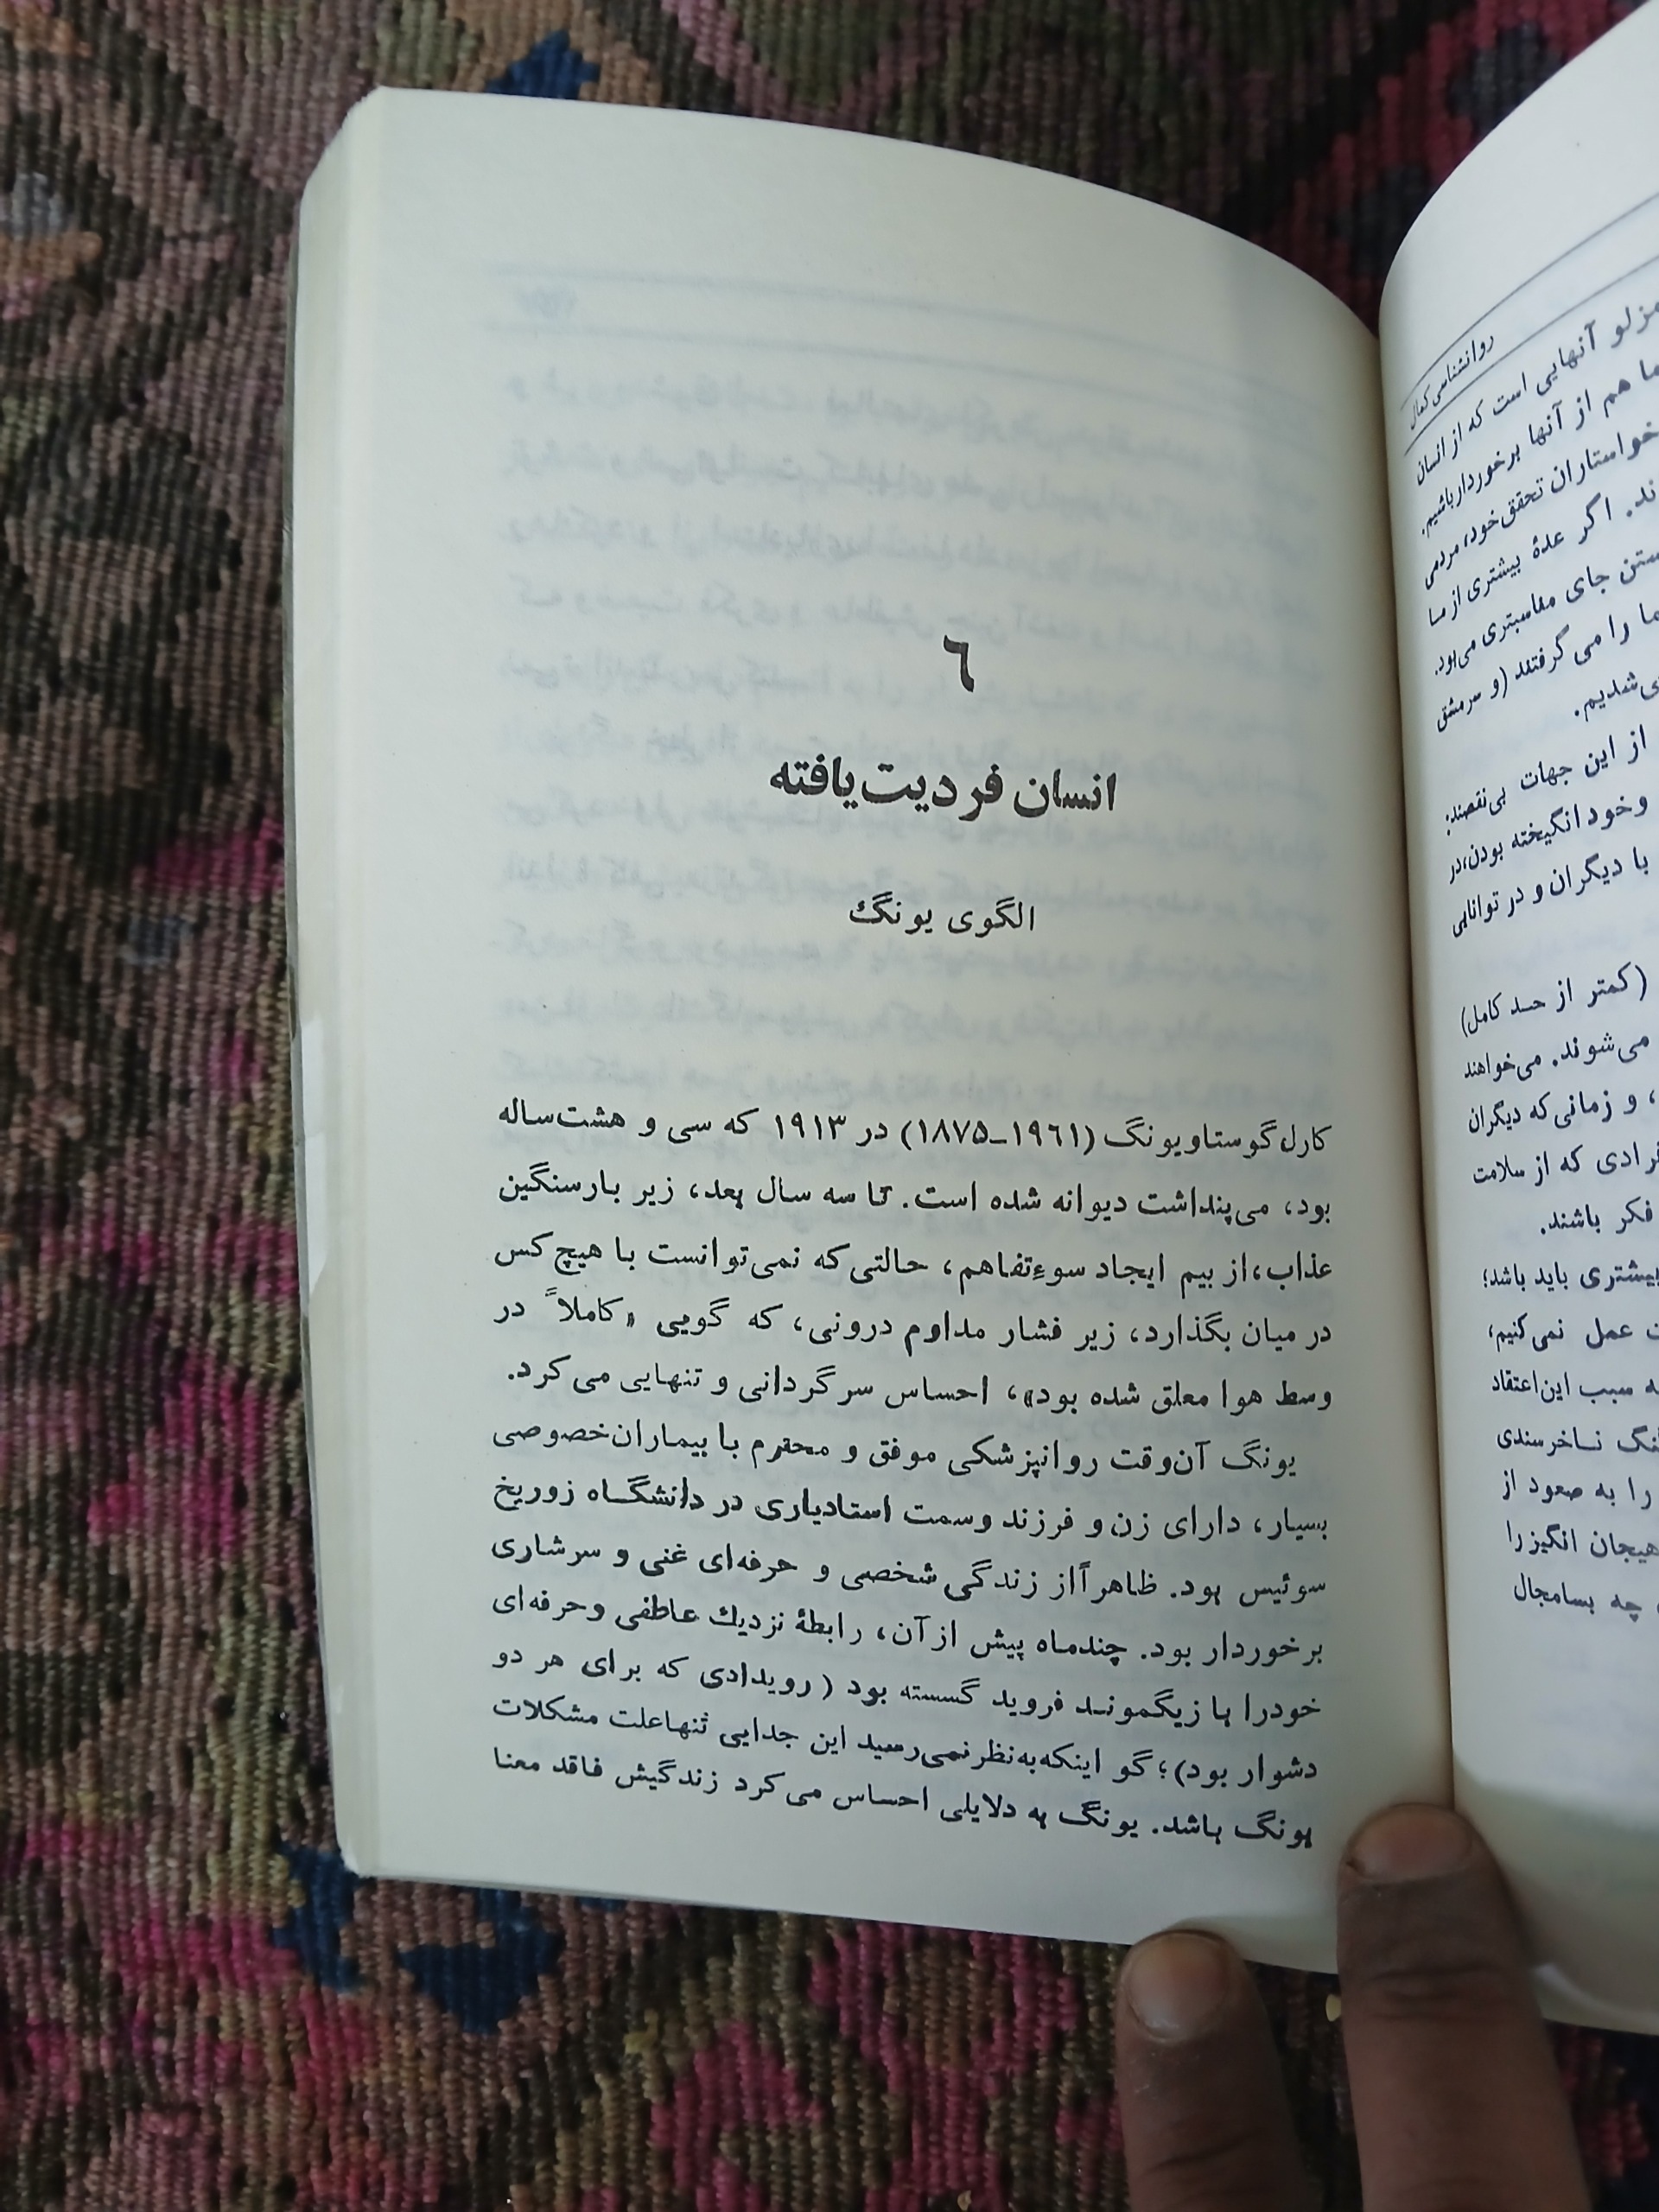 روانشناسی کمال
مزلو آنهایی است که از انسان
ما هم از آنها برخوردار باشیم.
خواستاران تحقق خود، مردمی
ند. اگر عدهٔ بیشتری از ما
ستن جای مناسبتری می‌بود.
ما را می‌گرفتند (و سرمشق
ی‌شدیم.
از این جهات بی‌نقصند:
وخود انگیخته بودن، در
با دیگران و در توانایی
(کمتر از حد کامل)
می‌شوند. می‌خواهند
، و زمانی‌که دیگران
فرادی که از سلامت
فکر باشند.
بیشتری باید باشد؛
ت عمل نمی‌کنیم،
ه سبب این‌اعتقاد
نگ ناخرسندی
را به صعود از
هیجان انگیز را
چه بسامجال
٦
انسان فردیت‌یافته
الگوی یونگ
کارل گوستاو یونگ (۱۹۶۱-۱۸۷۵) در ۱۹۱۳ که سی و هشت‌ساله
بود، می‌پنداشت دیوانه شده است. تا سه سال بعد، زیر بارسنگین
عذاب، از بیم ایجاد سوءِتفاهم، حالتی‌که نمی‌توانست با هیچ کس
در میان بگذارد، زیر فشار مداوم درونی، که گویی «کاملاً در
وسط هوا معلق شده بود»، احساس سرگردانی و تنهایی می‌کرد.
یونگ آن‌وقت روانپزشکی موفق و محترم با بیماران‌خصوصی
بسیار، دارای زن و فرزند وسمت استادیاری در دانشگاه زوریخ
سوئیس بود. ظاهراً از زندگی شخصی و حرفه‌ای غنی و سرشاری
برخوردار بود. چندماه پیش از آن، رابطهٔ نزدیك عاطفی وحرفه‌ای
خودرا با زیگموند فروید گسسته بود (رویدادی که برای هر دو
دشوار بود)؛ گو اینکه‌به‌نظرنمی‌رسید این جدایی تنهاعلت مشکلات
یونگ باشد. یونگ به دلایلی احساس می‌کرد زندگیش فاقد معنا